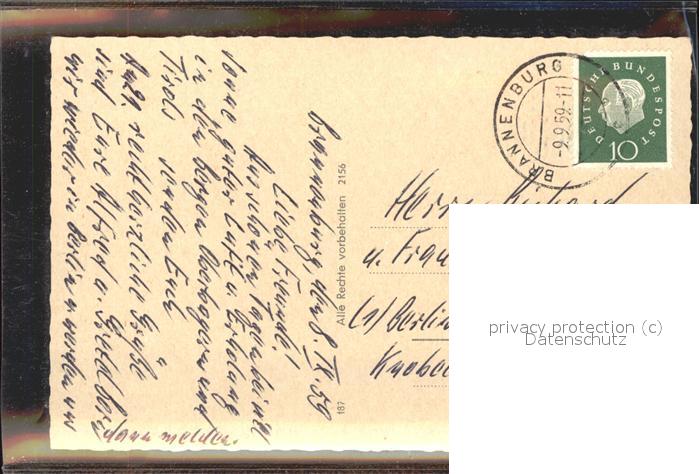 Brannenburg, den 8. IX. 59
Liebe Freunde!
Aus schönen Tagen bei viel
Sonne, guter Luft u. Erholung
in den Bergen Oberbayerns und
Tirols senden Euch
recht herzliche Grüße
sind Eure Alfred u.
wir wieder in Berlin u. werden uns
dann melden.
Alle Rechte vorbehalten 2156
187
BRANNENBURG
-9.9.59-11
DEUTSCHE BUNDESPOST
10
Herrn
u. Frau
(1) Berlin
privacy protection (c)
Datenschutz